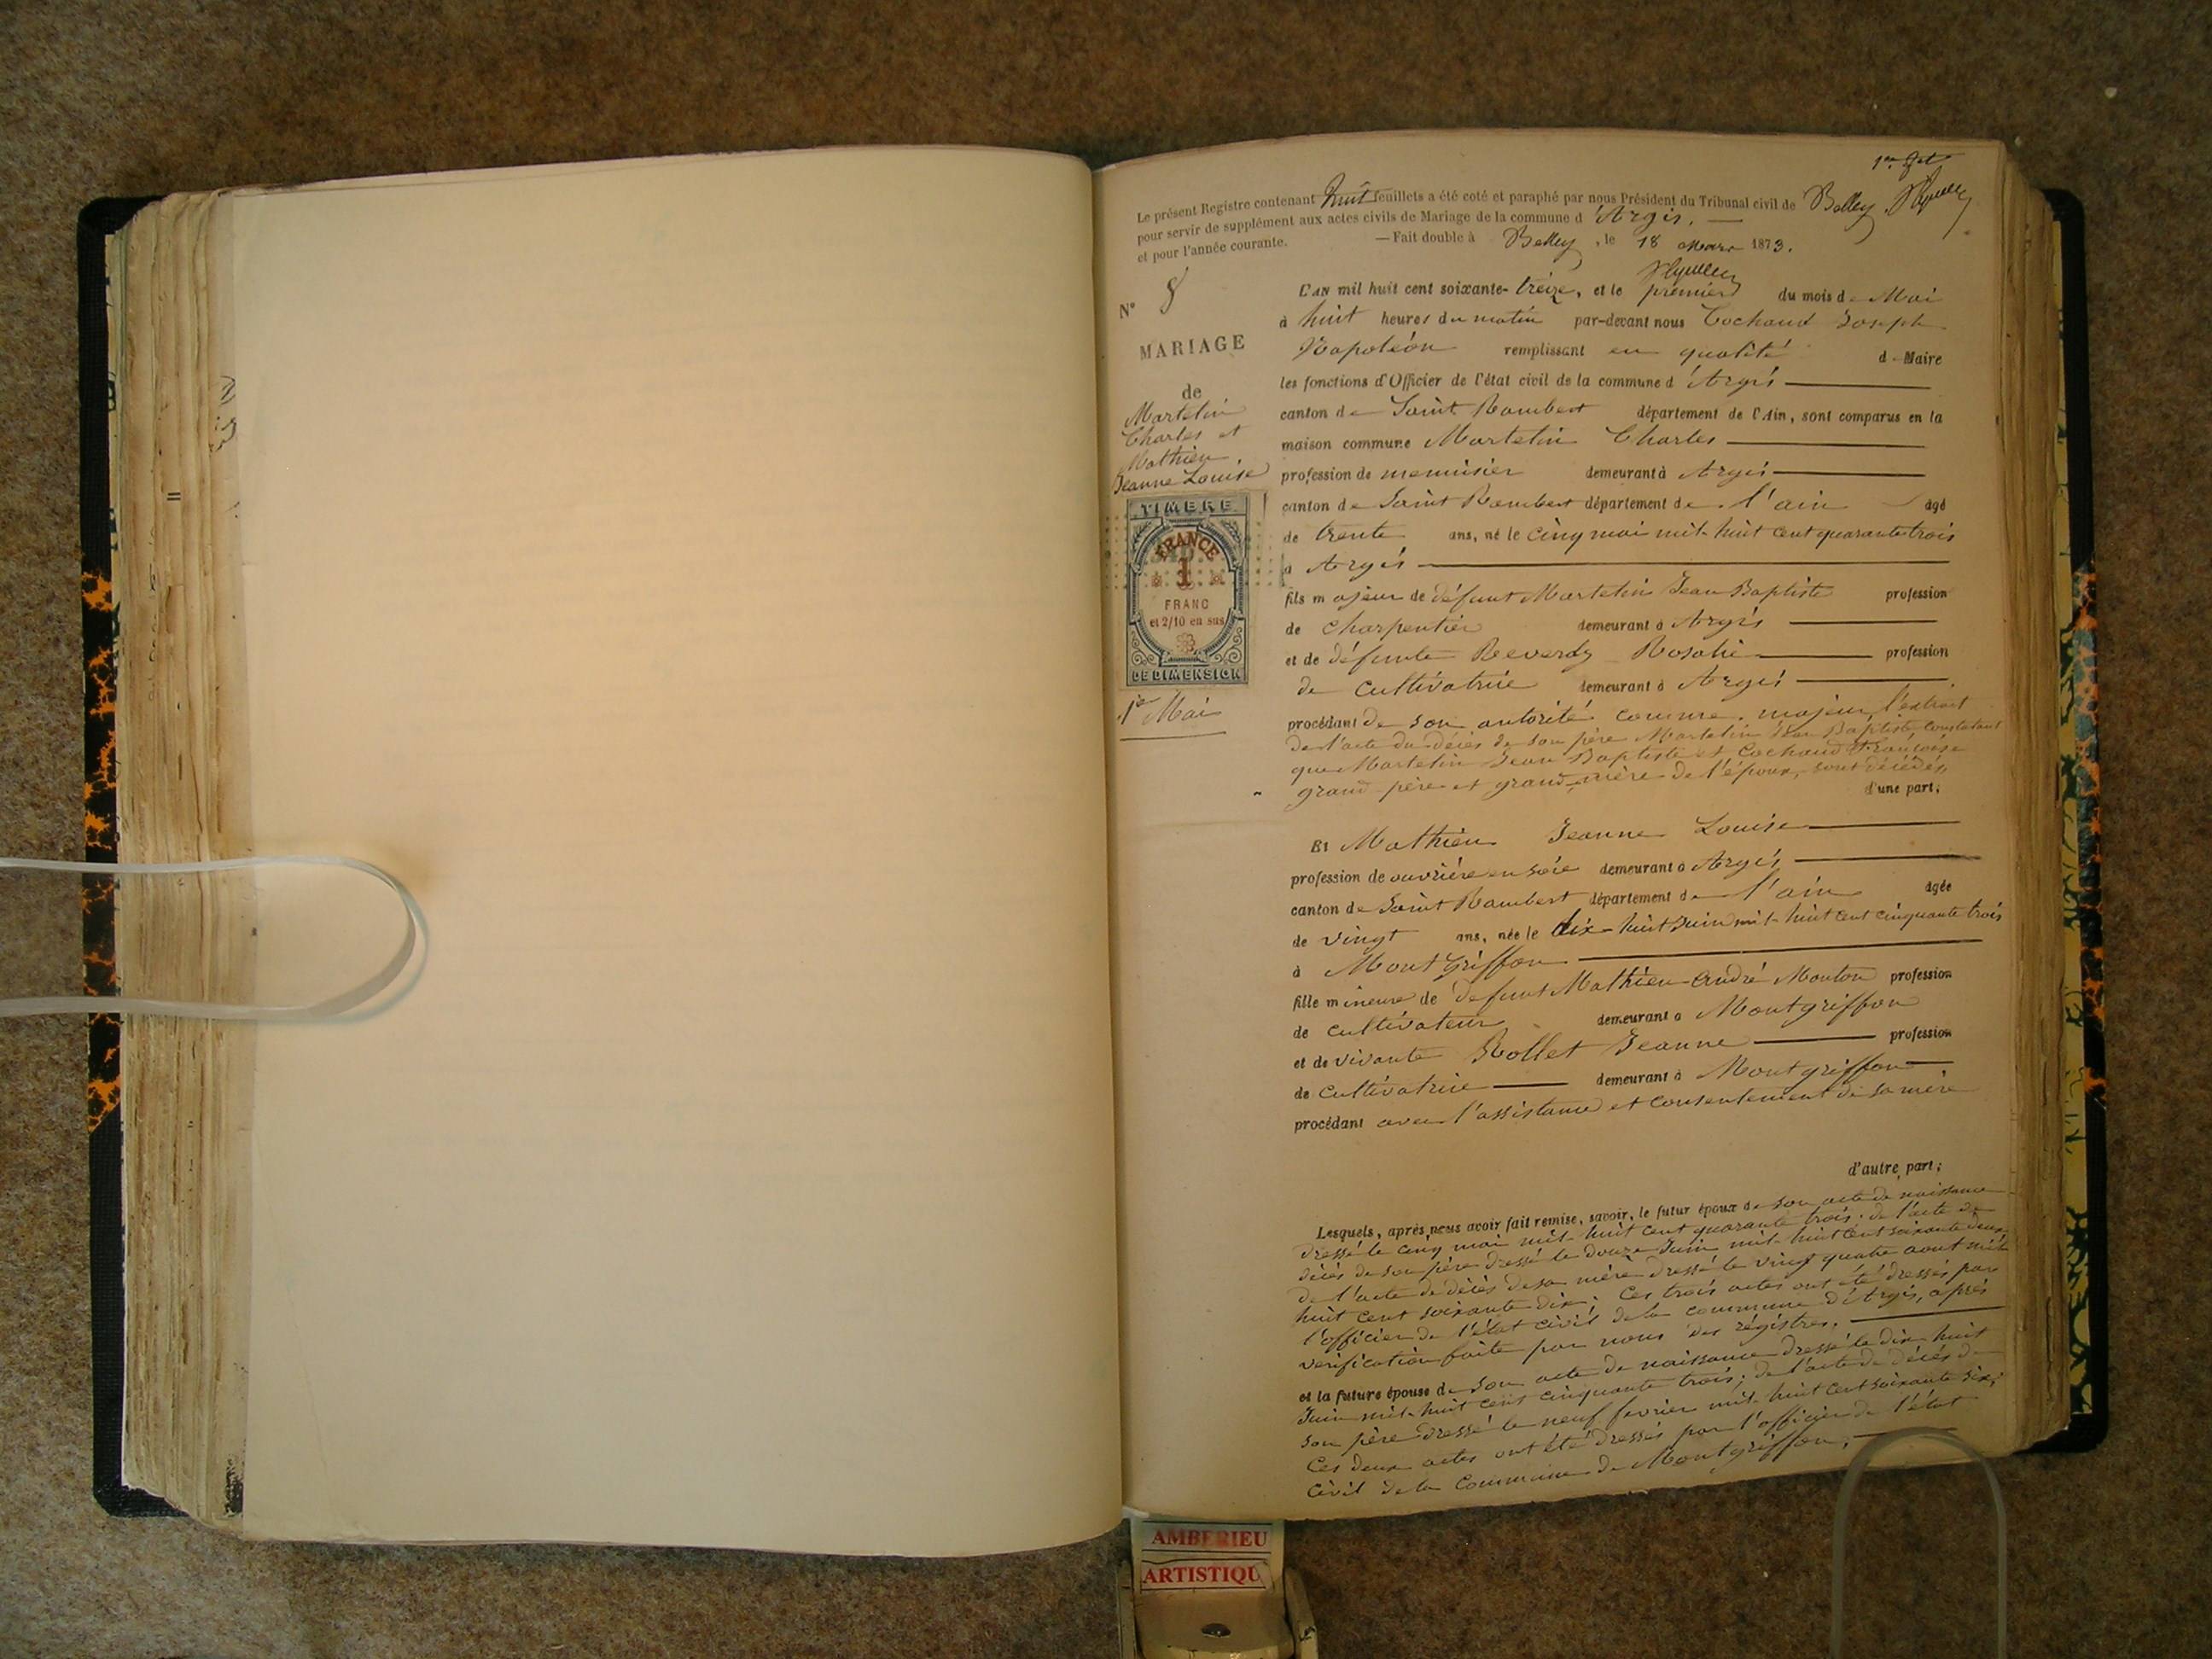 1er
Le présent Registre contenant huit feuillets a été coté et paraphé par nous Président du Tribunal civil de Belley
pour servir de supplément aux actes civils de Mariage de la commune d'Argis.
et pour l'année courante. — Fait double à Belley, le 18 Mars 1873.
N° 8
MARIAGE
de
Martelin
Charles et
Mathieu
Jeanne Louise
TIMBRE
FRANCE
1
FRANC
et 2/10 en sus
DE DIMENSION
1er Mai
L'AN mil huit cent soixante-treize, et le premier du mois de Mai
à huit heures du matin par-devant nous Cochaud Joseph
Napoléon remplissant en qualité de Maire
les fonctions d'Officier de l'état civil de la commune d'Argis
canton de Saint Rambert département de l'Ain, sont comparus en la
maison commune Martelin Charles
profession de menuisier demeurant à Argis
canton de Saint Rambert département de l'ain agé
de trente ans, né le cinq mai mil-huit cent quarante trois
à Argis
fils majeur de défunt Martelin Jean Baptiste profession
de charpentier demeurant à Argis
et de défunte Reverdy Rosalie profession
de cultivatrice demeurant à Argis
procédant de son autorité comme majeur, l'extrait
de l'acte du décès de son père Martelin Jean Baptiste constatant
que Martelin Jean Baptiste et Cochaud Françoise
grand-père et grand-mère de l'époux, sont décédés,
d'une part;
Et Mathieu Jeanne Louise
profession de ouvrière en soie demeurant à Argis,
canton de Saint Rambert département de l'ain agée
de vingt ans, née le dix-huit Juin mil-huit cent cinquante trois
à Montgriffon
fille mineure de défunt Mathieu André Mouton profession
de cultivateur demeurant à Montgriffon
et de vivante Rollet Jeanne profession
de cultivatrice demeurant à Montgriffon
procédant avec l'assistance et consentement de sa mère
d'autre part;
Lesquels, après nous avoir fait remise, savoir, le futur époux de son acte de naissance
dressé le cinq mai mil-huit cent quarante trois; de l'acte de
décès de son père dressé le douze Juin mil-huit cent soixante deux,
de l'acte de décès de sa mère dressé le vingt quatre aout mil
huit cent soixante dix; Ces trois actes ont été dressés par
l'officier de l'état civil de la commune d'Argis, après
vérification faite par nous des régistres.
et la future épouse de son acte de naissance dressé le dix huit
Juin mil-huit cent cinquante trois; de l'acte de décès de
son père dressé le neuf fevrier mil-huit cent soixante six;
Ces deux actes ont été dressés par l'officier de l'état
civil de la Commune de Montgriffon;
AMBERIEU
ARTISTIQU